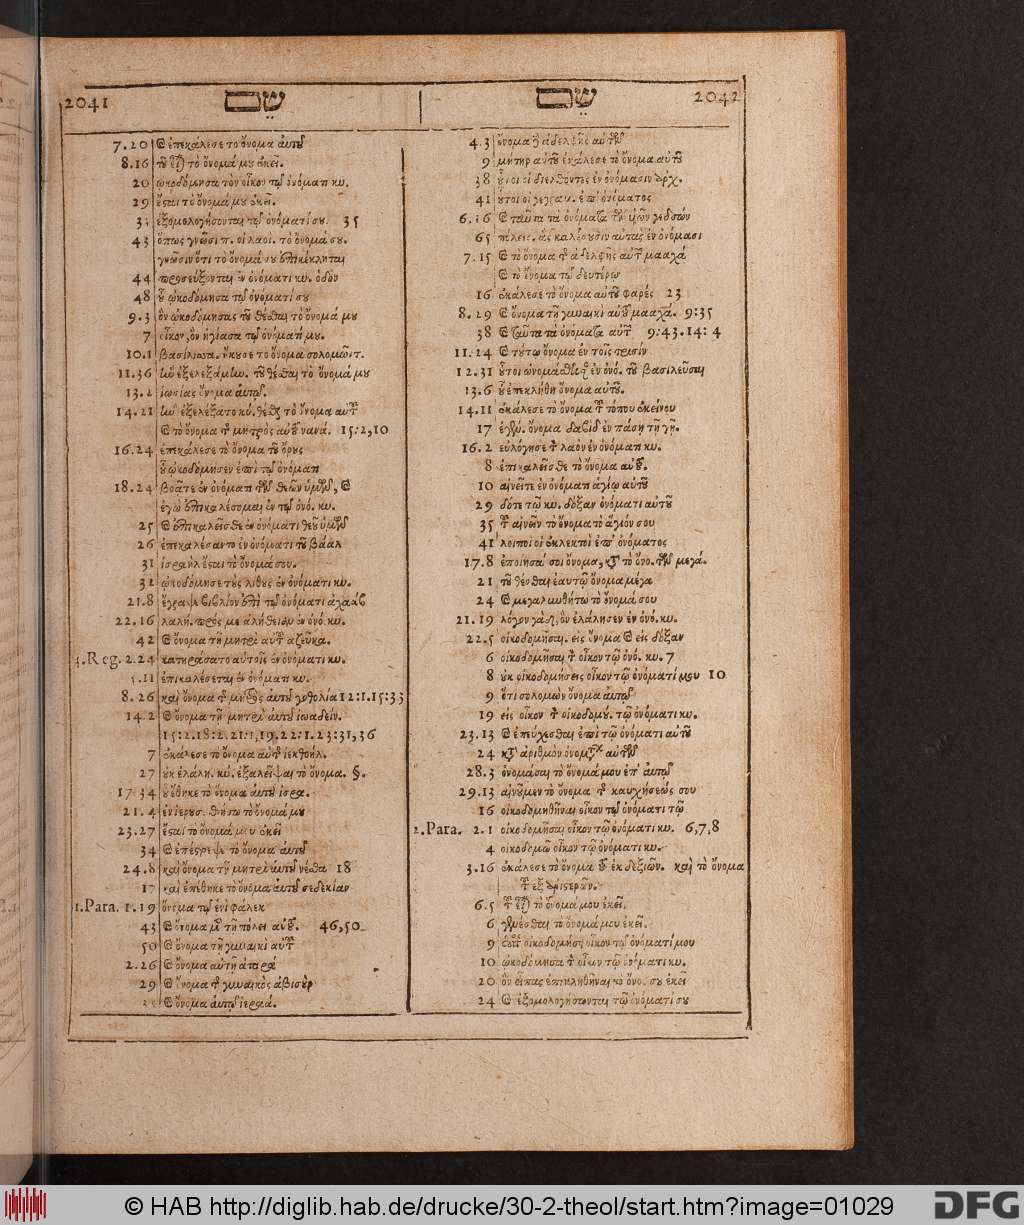 2041 שֵׁם
7.20 ἐπεκάλεσε τὸ ὄνομα αὐτοῦ
8.16 τὸ ὄνομά μου ἐκεῖ.
20 ᾠκοδόμησα τὸν οἶκον τῷ ὀνόματι κυ.
29 ἔσται τὸ ὄνομά μου ἐκεῖ.
ἐξομολογήσονται τῷ ὀνόματί σου. 35
43 ὅπως γνῶσι π. οἱ λαοὶ. τὸ ὄνομά σου.
γνῶσιν ὅτι τὸ ὄνομά σου ἐπικέκληται
44 προσεύξονται ἐν ὀνόματι κυ. ὁδὸν
48 οὗ ᾠκοδόμησα τῷ ὀνόματί σου
9.3 ὃν ᾠκοδόμησας τοῦ θέσθαι τὸ ὄνομά μου
7 οἶκον, ὃν ἡγίασα τῷ ὀνόματί μου.
10.1 βασίλισσα. ἤκουσε τὸ ὄνομα σολομῶντ.
11.36 ἣν ἐξελεξάμην. τοῦ θέσθαι τὸ ὄνομά μου
13.2 ἰωσίας ὄνομα αὐτῷ.
14.21 ἣν ἐξελέξατο κύ. θέσθαι τὸ ὄνομα αὐτοῦ
τὸ ὄνομα τῆς μητρὸς αὐτοῦ νανά. 15:2,10
16.24 ἐπεκάλεσε τὸ ὄνομα τοῦ ὄρους
οὗ ᾠκοδόμησεν ἐπὶ τῷ ὀνόματι
18.24 βοᾶτε ἐν ὀνόματι θεῶν ὑμῶν, καὶ
ἐγὼ ἐπικαλέσομαι ἐν τῷ ὀνό. κυ.
25 ἐπικαλεῖσθε ἐν ὀνόματι θεοῦ ὑμῶν
26 ἐπεκαλέσαντο ἐν ὀνόματι τοῦ βάαλ
31 ἰσραὴλ ἔσται τὸ ὄνομά σου.
32 ᾠκοδόμησε τοὺς λίθους ἐν ὀνόματι κυ.
21.8 ἔγραψε βιβλίον ἐπὶ τῷ ὀνόματι ἀχαὰβ
22.16 λαλή. πρός με ἀλήθειαν ἐν ὀνό. κυ.
42 καὶ ὄνομα τῇ μητρὶ αὐτοῦ ἀζουβα.
4.Reg. 2.24 κατηράσατο αὐτοῖς ἐν ὀνόματι κυ.
5.11 ἐπικαλέσεται ἐν ὀνόματι κυ.
8.26 καὶ ὄνομα τῆς μητρὸς αὐτοῦ γοθολία 12:1.15:33
14.2 καὶ ὄνομα τῇ μητρὶ αὐτοῦ ἰωαδείν.
15:2.18:2.21:1,19.22:1.23:31,36
7 ἐκάλεσε τὸ ὄνομα αὐτῆς ἰεκθοήλ.
27 οὐκ ἐλάλη. κύ. ἐξαλεῖψαι τὸ ὄνομα. §.
17 34 οὗ ἔθηκε τὸ ὄνομα αὐτοῦ ἰσρα.
21.4 ἐν ἱερουσ. θήσω τὸ ὄνομά μου
23.27 ἔσται τὸ ὄνομά μου ἐκεῖ
34 καὶ ἐπέστρεψε τὸ ὄνομα αὐτοῦ
24.8 καὶ ὄνομα τῇ μητρὶ αὐτοῦ νέσθα 18
17 καὶ ἐπέθηκε τὸ ὄνομα αὐτοῦ σεδεκίαν
1.Para. 1.19 ὄνομα τῷ ἑνὶ φάλεκ
43 καὶ ὄνομα τῇ πόλει αὐτοῦ. 46,50
50 καὶ ὄνομα τῇ γυναικὶ αὐτοῦ
2.26 καὶ ὄνομα αὐτῇ ἀταρά
29 καὶ ὄνομα τῆς γυναικὸς ἀβισοὺρ
καὶ ὄνομα αὐτῷ ἱεραά.
שֵׁם 2042
4.3 ὄνομα ἀδελφῆς αὐτῶν
9 μήτηρ αὐτοῦ ἐκάλεσε τὸ ὄνομα αὐτοῦ
38 οὗτοι οἱ διελθόντες ἐν ὀνόμασιν ἀρχ.
41 οὗτοι οἱ γεγραμ. ἐπ' ὀνόματος
καὶ ταῦτα τὰ ὀνόματα τῶν υἱῶν γεδσών
65 πόλεις. ἃς καλέσουσιν αὐτὰς ἐν ὀνόμασι
7.15 καὶ τὸ ὄνομα τῆς ἀδελφῆς αὐτοῦ μααχά
καὶ τὸ ὄνομα τῷ δευτέρῳ
16 ἐκάλεσε τὸ ὄνομα αὐτοῦ φαρές 23
8.29 καὶ ὄνομα τῇ γυναικὶ αὐτοῦ μααχά. 9:35
38 καὶ ταῦτα τὰ ὀνόματα αὐτῶν 9:43.14:4
11.24 καὶ τούτῳ ὄνομα ἐν τοῖς τρισίν
12.31 οὗτοι ὠνομάσθησαν ἐν ὀνό. τοῦ βασιλεῦσαι
13.6 οὗ ἐπεκλήθη ὄνομα αὐτοῦ.
14.11 ἐκάλεσε τὸ ὄνομα τοῦ τόπου ἐκείνου
17 ἐγέν. ὄνομα δαβὶδ ἐν πάσῃ τῇ γῇ.
16.2 εὐλόγησε τὸν λαὸν ἐν ὀνόματι κυ.
8 ἐπικαλεῖσθε τὸ ὄνομα αὐτοῦ.
10 αἰνεῖτε ἐν ὀνόματι ἁγίῳ αὐτοῦ
29 δότε τῷ κυ. δόξαν ὀνόματι αὐτοῦ
35 τοῦ αἰνεῖν τὸ ὄνομα τὸ ἅγιόν σου
41 λοιποὶ οἱ ἐκλεκτοὶ ἐπ' ὀνόματος
17.8 ἐποίησά σοι ὄνομα, κατὰ τὸ ὄνο. τῶν μεγά.
21 τοῦ θέσθαι ἑαυτῷ ὄνομα μέγα
24 καὶ μεγαλυνθήτω τὸ ὄνομά σου
21.19 λόγον γὰδ, ὃν ἐλάλησεν ἐν ὀνό. κυ.
22.5 οἰκοδομῆσαι. εἰς ὄνομα καὶ εἰς δόξαν
6 οἰκοδομῆσαι τὸν οἶκον τῷ ὀνό. κυ. 7
8 οὐκ οἰκοδομήσεις οἶκον τῷ ὀνόματί μου 10
9 ὅτι σολομὼν ὄνομα αὐτῷ
19 εἰς οἶκον τὸν οἰκοδομού. τῷ ὀνόματι κυ.
23.13 καὶ ἐπεύχεσθαι ἐπὶ τῷ ὀνόματι αὐτοῦ
24 κατὰ ἀριθμὸν ὀνομάτων αὐτῶν
28.3 ὀνομάσαι τὸ ὄνομά μου ἐπ' αὐτῷ
29.13 αἰνοῦμεν τὸ ὄνομα τῆς καυχήσεώς σου
16 οἰκοδομηθῆναι οἶκον τῷ ὀνόματι τῷ
2.Para. 2.1 οἰκοδομῆσαι οἶκον τῷ ὀνόματι κυ. 6,7,8
4 οἰκοδομῶ οἶκον τῷ ὀνόματι κυ.
3.16 ἐκάλεσε τὸ ὄνομα τοῦ ἐκ δεξιῶν. καὶ τὸ ὄνομα
τοῦ ἐξ ἀριστερῶν.
6.5 τὸ ὄνομά μου ἐκεῖ.
6 γενέσθαι τὸ ὄνομά μου ἐκεῖ.
9 οἰκοδομήσει οἶκον τῷ ὀνόματί μου
10 ᾠκοδόμησα τὸν οἶκον τῷ ὀνόματι κυ.
20 ὃν εἶπας ἐπικληθῆναι τὸ ὄνο. σου ἐκεῖ
24 καὶ ἐξομολογήσωνται τῷ ὀνόματί σου
© HAB http://diglib.hab.de/drucke/30-2-theol/start.htm?image=01029
DFG